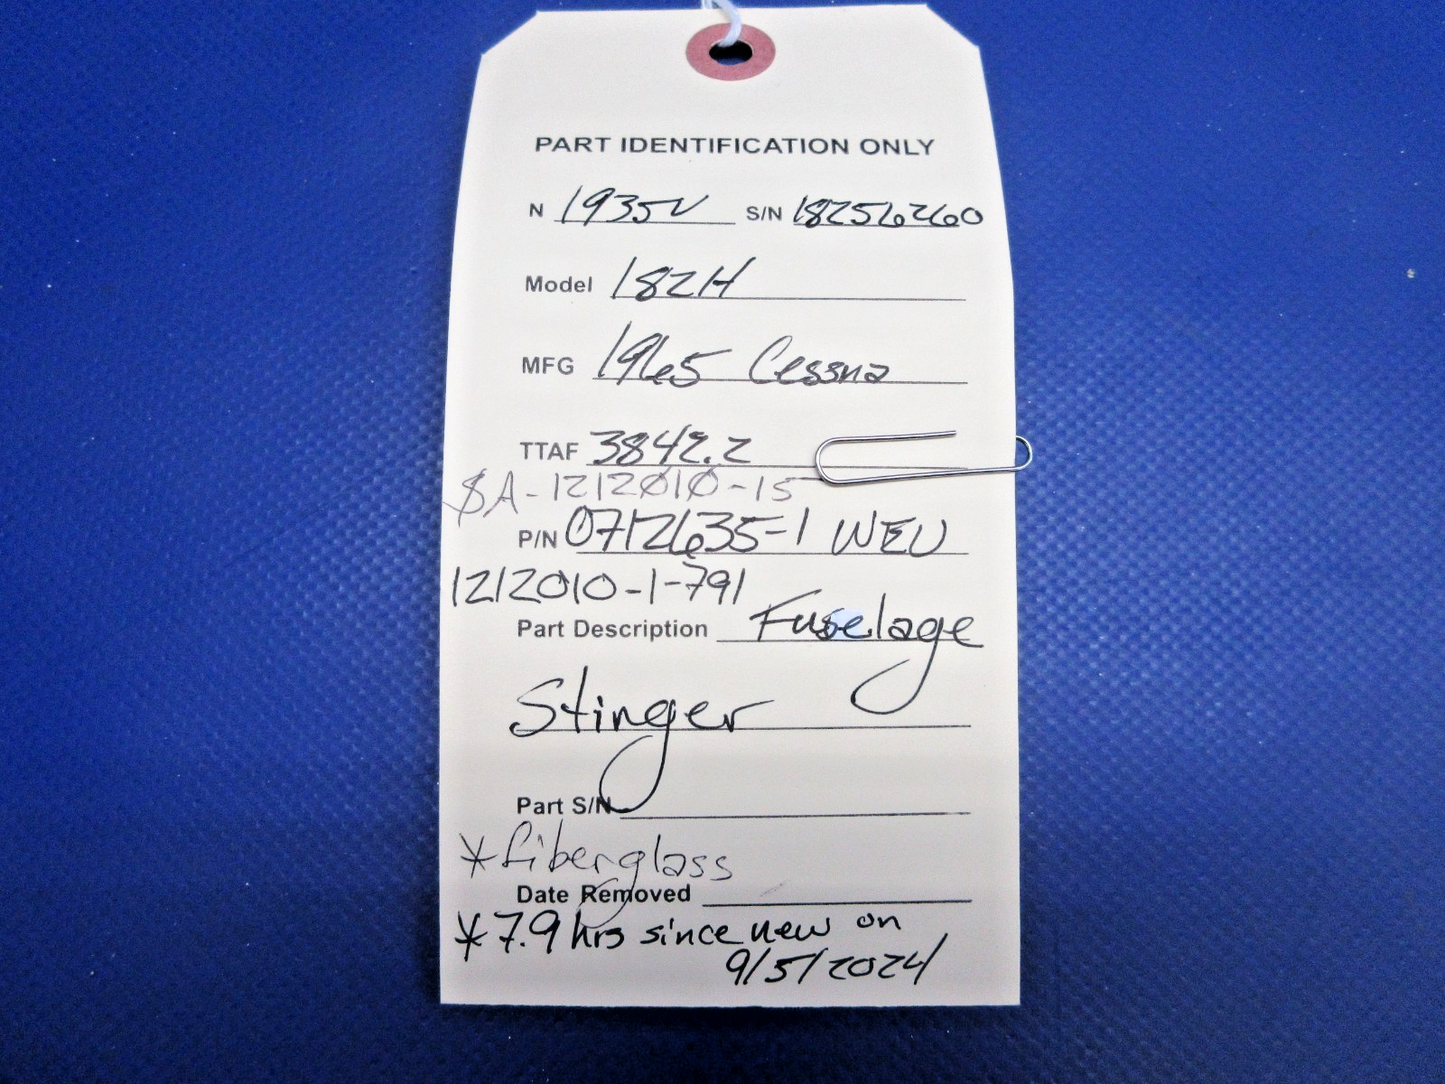 PART IDENTIFICATION ONLY
N 1935V S/N 18256260
Model 182H
MFG 1965 Cessna
TTAF 3842.2
SA-1212010-15
P/N 0712635-1 WEU
1212010-1-791
Part Description Fuselage
Stinger
Part S/N
*fiberglass
Date Removed
*7.9 hrs since new on
9/5/2024